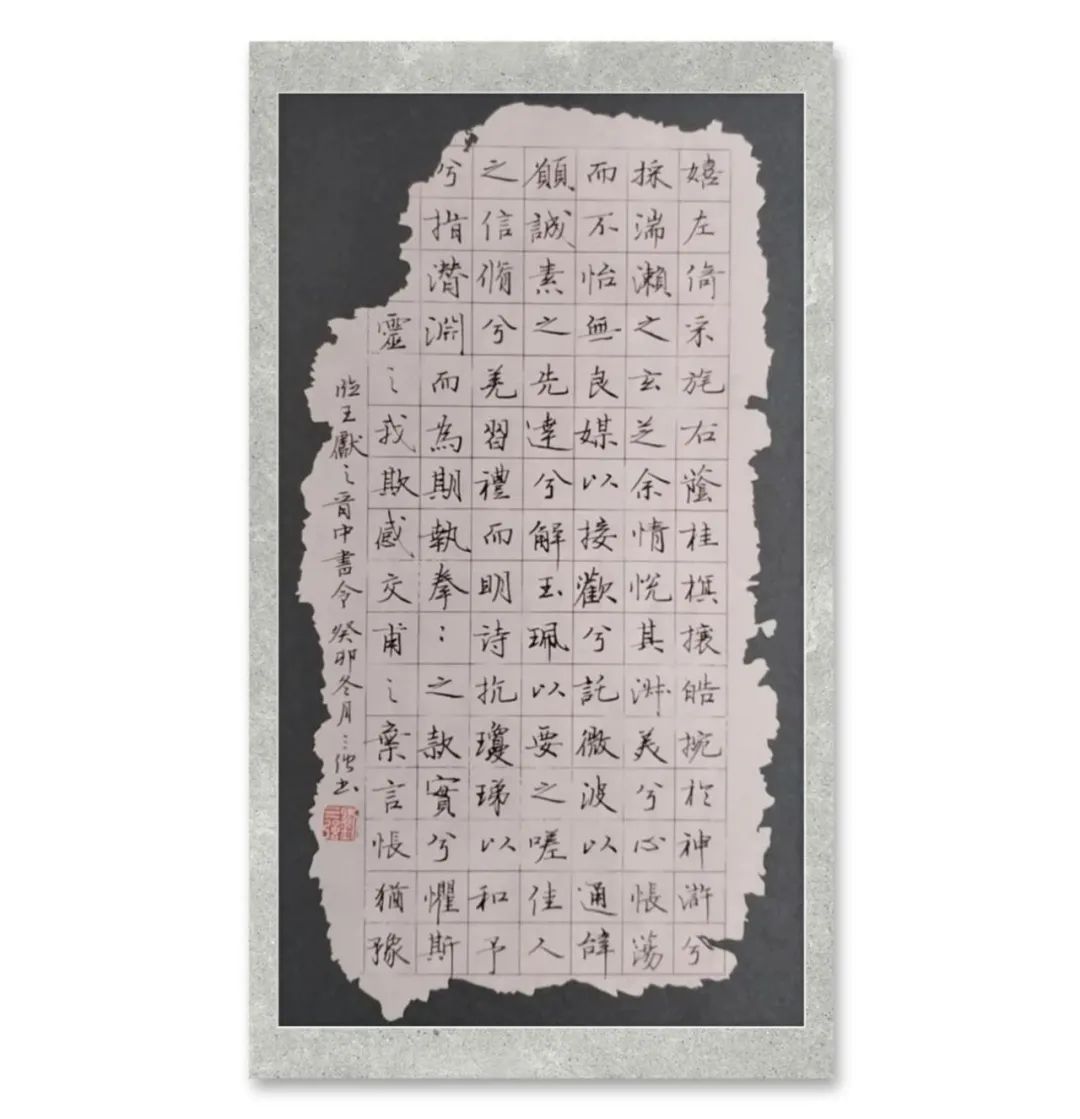 嬉左倚采旄右蔭桂旗攘皓捥於神滸兮
採湍瀨之玄芝余情悅其淑美兮心悵蕩
而不怡無良媒以接歡兮託微波以通辭
願誠素之先達兮解玉珮以要之嗟佳人
之信脩兮羌習禮而明詩抗瓊珶以和予
兮指潛淵而為期執拳:之款實兮懼斯
靈之我欺感交甫之棄言悵猶豫
臨王獻之晉中書令 癸卯冬月 书